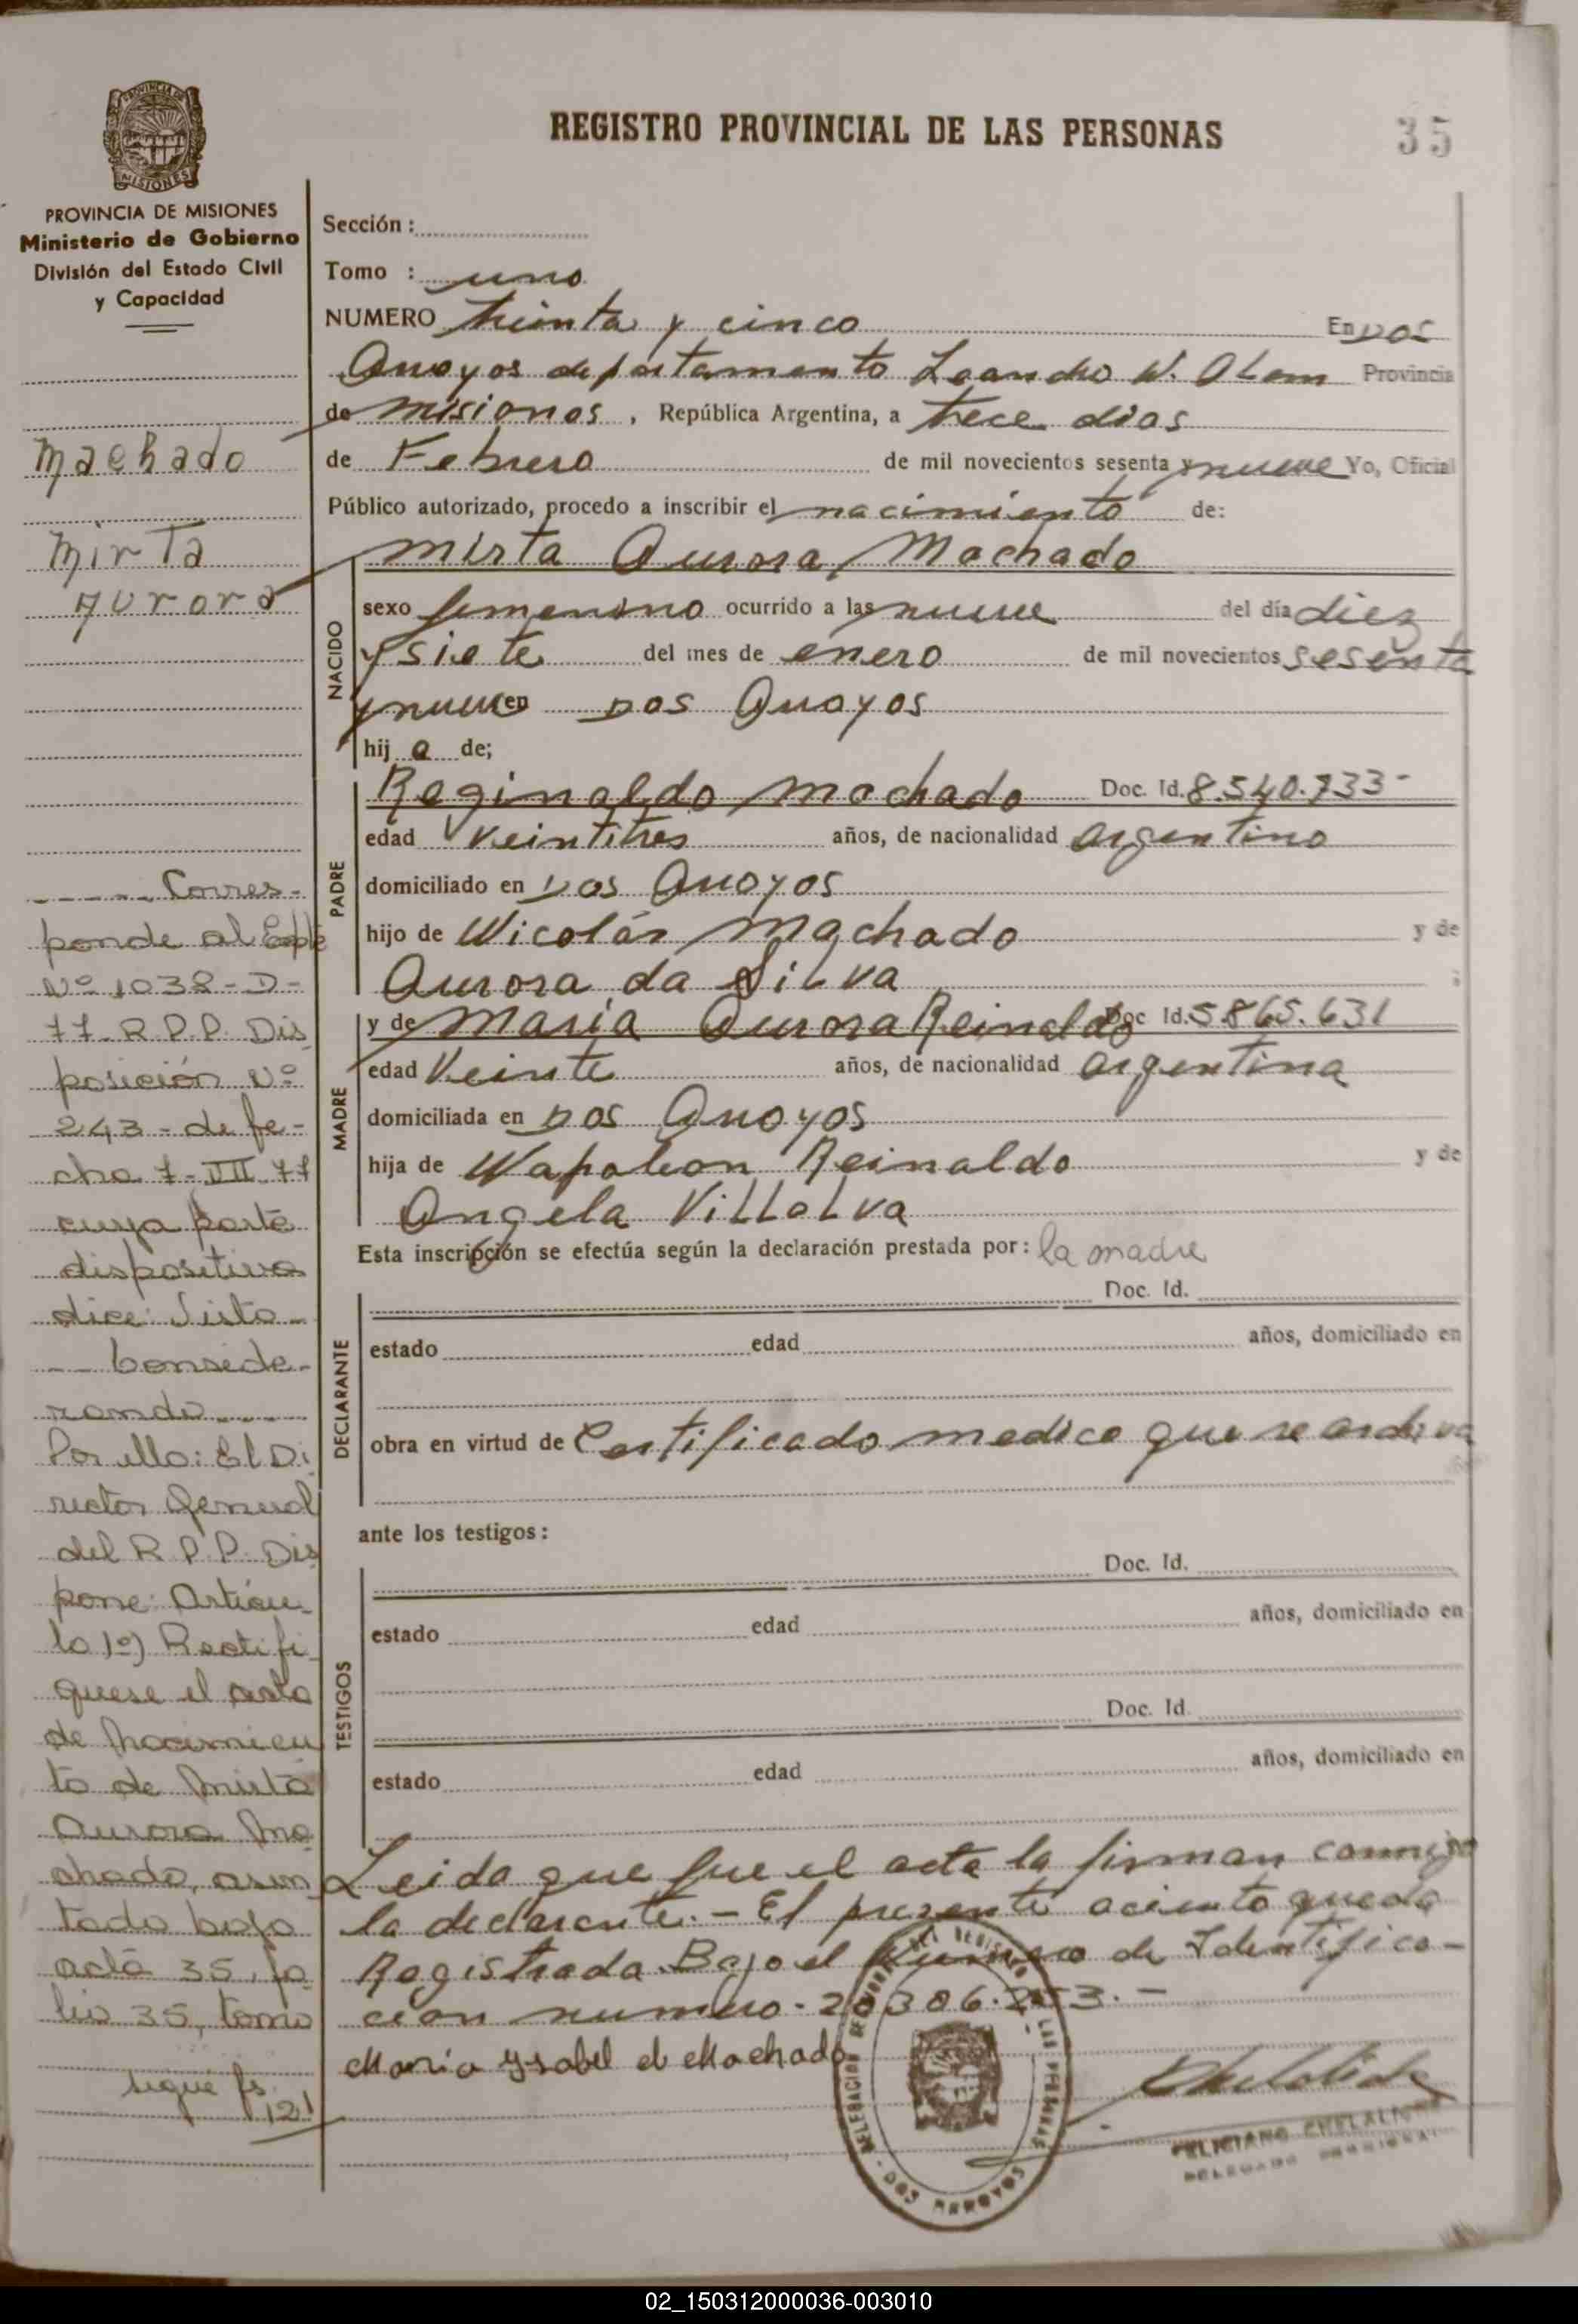 REGISTRO PROVINCIAL DE LAS PERSONAS
35
PROVINCIA DE MISIONES
PROVINCIA DE MISIONES
Ministerio de Gobierno
División del Estado Civil
y Capacidad
Machado
Mirta
Aurora
----- Corres-
ponde al Expte
Nº 1038-D-
77-R.P.P. Dis
posición Nº
243 - de fe-
cha 7-VII-77
cuya parte
dispositiva
dice: Visto-
-- Conside-
rando----
Por ello: El Di
rector General
del R.P.P. Dis
pone: Artícu-
lo 1º) Rectifi
quese el acta
de Nacimien
to de Mirta
Aurora Ma
chado, asen
tado bajo
acta 35, fo
lio 35, tomo
sigue fs.
121
Sección :
Tomo : uno
NUMERO treinta y cinco En Dos
Arroyos departamento Leandro N. Alem Provincia
de Misiones, República Argentina, a trece dias
de Febrero de mil novecientos sesenta y nueve Yo, Oficial
Público autorizado, procedo a inscribir el nacimiento de:
NACIDO
Mirta Aurora Machado
sexo femenino ocurrido a las nueve del día diez
y siete del mes de enero de mil novecientos sesenta
y nueve en Dos Arroyos
hij a de;
PADRE
Reginaldo Machado Doc. Id. 8.540.733-
edad veintitres años, de nacionalidad argentino
domiciliado en Dos Arroyos
hijo de Nicolás Machado y de
Aurora da Silva ;
MADRE
y de Maria Aurora Reinaldo Doc Id. 5.865.631
edad Veinte años, de nacionalidad argentina
domiciliada en Dos Arroyos
hija de Napoleon Reinaldo y de
Angela Villalva
Esta inscripción se efectúa según la declaración prestada por: la madre
DECLARANTE
Doc. Id.
estado edad años, domiciliado en
obra en virtud de Certificado medico que se archiva
ante los testigos:
TESTIGOS
Doc. Id.
estado edad años, domiciliado en
Doc. Id.
estado edad años, domiciliado en
Leida que fue el acta la firman conmigo
la declarente.- El presente aciento queda
Registrada Bajo el Numero de Identifica-
cion numero - 20.306.253.-
Maria Ysabel d Machado
DELEGACION DEL REGISTRO DE LAS PERSONAS
- DOS ARROYOS -
FELICIANO CHELALICHE
DELEGADO
02_150312000036-003010